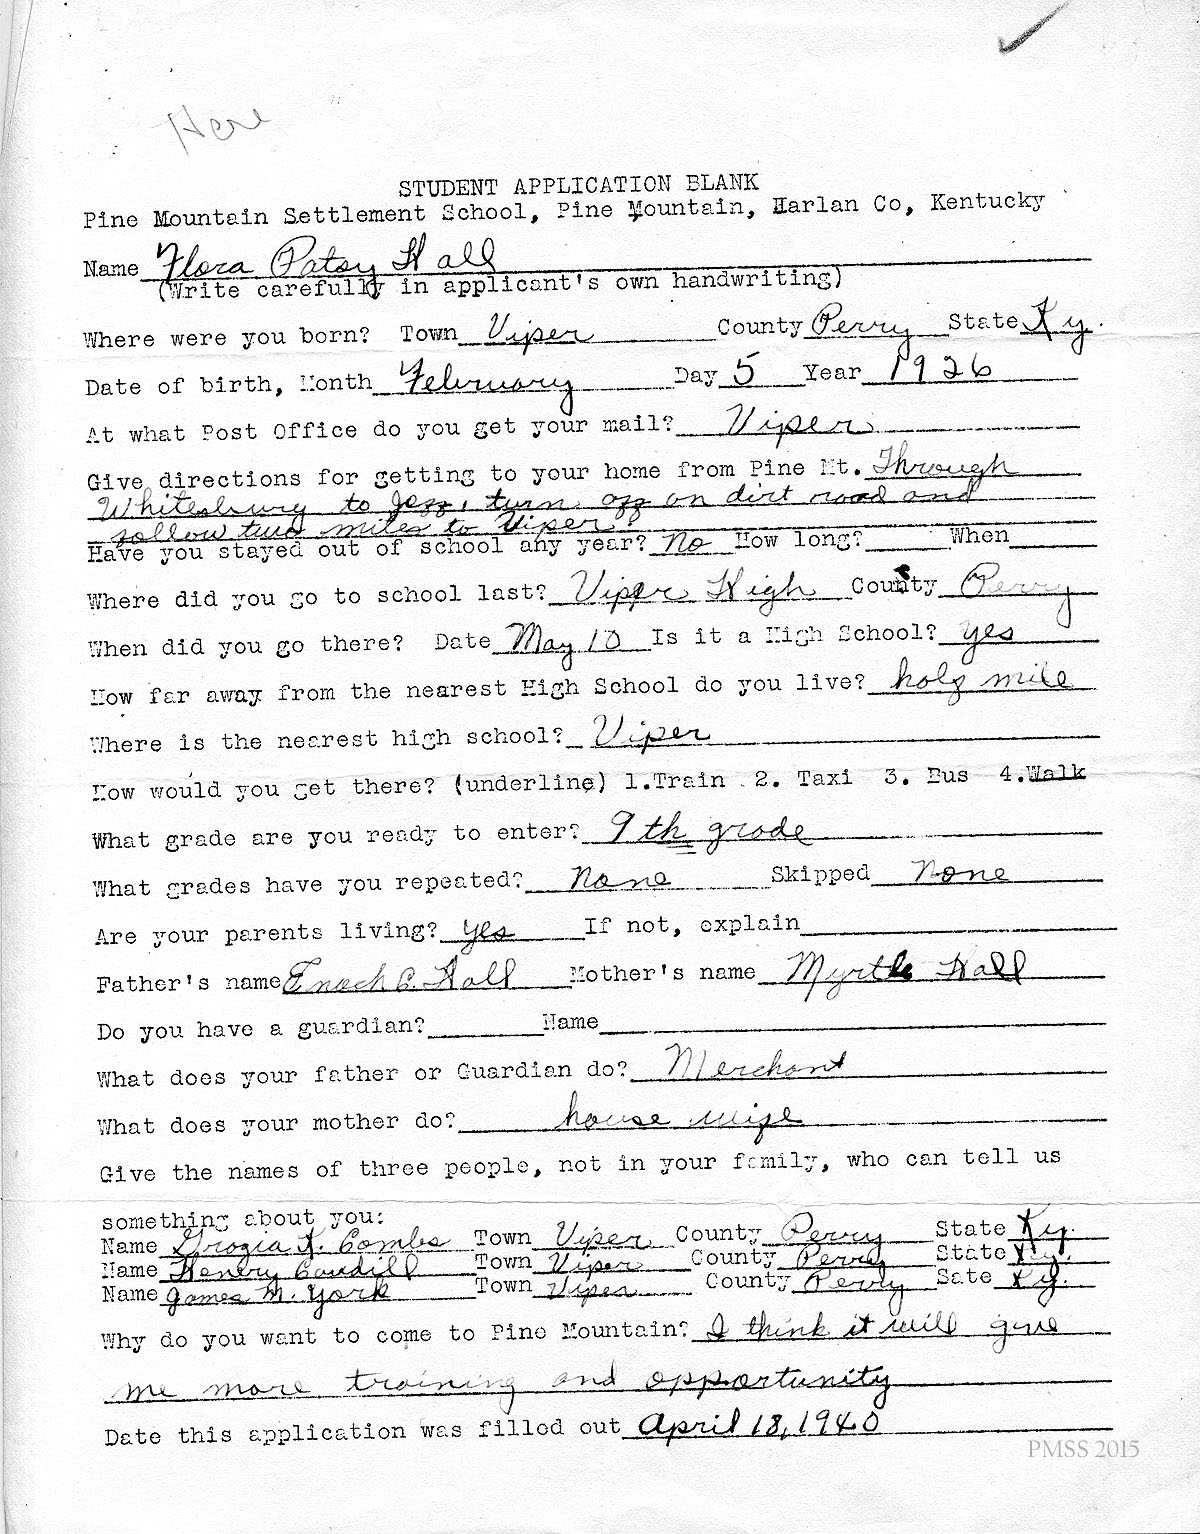 Here
STUDENT APPLICATION BLANK
Pine Mountain Settlement School, Pine Mountain, Harlan Co, Kentucky
Name Flora Patsy Hall
(Write carefully in applicant's own handwriting)
Where were you born? Town Viper County Perry State Ky.
Date of birth, Month February Day 5 Year 1926
At what Post Office do you get your mail? Viper
Give directions for getting to your home from Pine Mt. Through
Whitesburg to Jeff, turn off on dirt road and
follow two miles to Viper.
Have you stayed out of school any year? No How long? When
Where did you go to school last? Viper High County Perry
When did you go there? Date May 10 Is it a High School? yes
How far away from the nearest High School do you live? half mile
Where is the nearest high school? Viper
How would you get there? (underline) 1.Train 2. Taxi 3. Bus 4.Walk
What grade are you ready to enter? 9th grade
What grades have you repeated? None Skipped None
Are your parents living? yes If not, explain
Father's name Enoch C. Hall Mother's name Myrtle Hall
Do you have a guardian? Name
What does your father or Guardian do? Merchant
What does your mother do? house wife
Give the names of three people, not in your family, who can tell us
something about you:
Name K. Combs Town Viper County Perry State Ky.
Name Henery Caudill Town Viper County Perry State Ky.
Name James M. York Town Viper County Perry Sate Ky.
Why do you want to come to Pine Mountain? I think it will give
me more training and opportunity
Date this application was filled out April 18, 1940
PMSS 2015